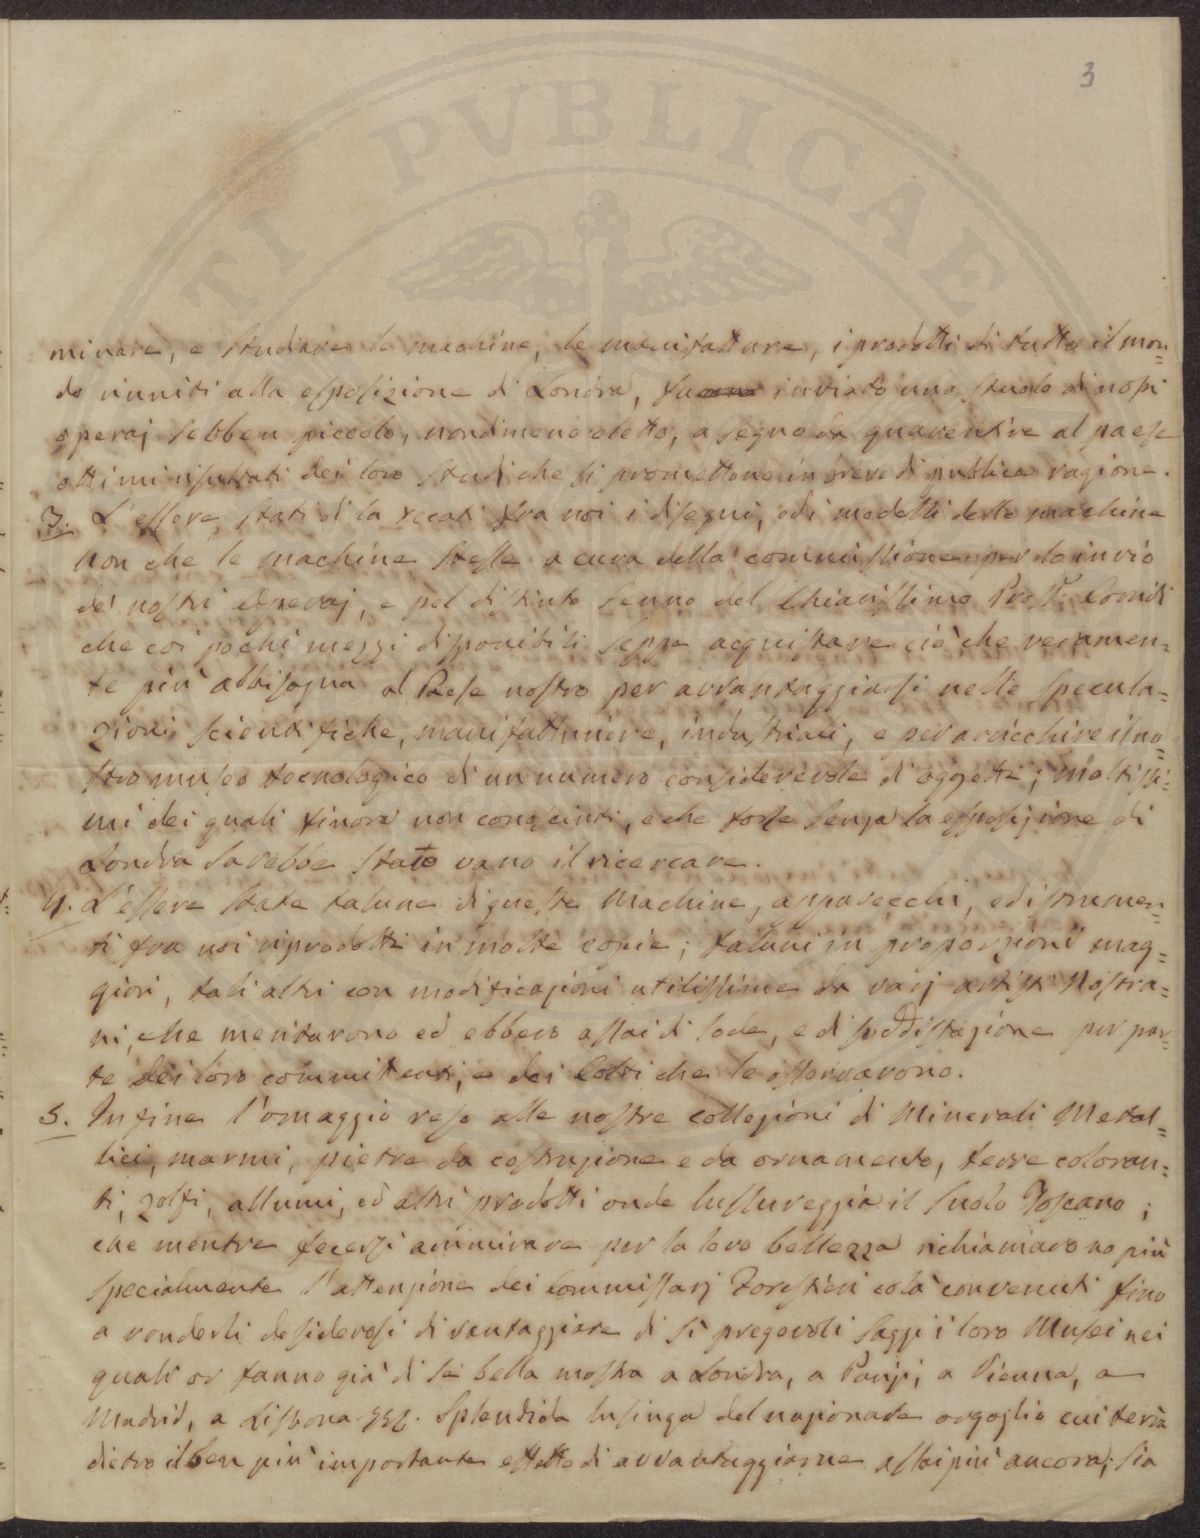 3
minare, e studiare le machine, le manifatture, i prodotti di tutto il mon=
do riuniti alla esposizione di Londra, fu inviato uno stuolo di nostri
operaj sebben piccolo, nondimeno eletto, a segno da guarentire al paese
ottimi risultati dei loro studi che si promettono in breve di publica ragione.
3. L'essere stati di la recati fra noi i disegni, ed i modelli delle machine
non che le machine stesse a cura della commissione per lo invio
dei nostri Operaj, e pel distinto senno del Chiarissimo Prof. Corridi
che coi pochi mezzi disponibili seppe acquistare ciò che veramen=
te più abbisogna al Paese nostro per avvantaggiarsi nelle specula=
zioni scientifiche, manifatturiere, industriali, e per arricchire il no=
stro museo tecnologico di un numero considerevole di oggetti; moltissi=
mi dei quali finora non conosciuti, e che forse senza la esposizione di
Londra sarebbe stato vano il ricercare.
4. L'essere state talune di queste Machine, apparecchi, ed istrumen=
ti fra noi riprodotti in molte copie; taluni in proporzioni mag=
giori, tali altri con modificazioni utilissime da varj artisti Nostra=
ni, che meritarono ed ebbero assai di lode, e di soddisfazione per par=
te dei loro committenti, e dei Colti che le osservarono.
5. Infine l'omaggio reso alle nostre collezioni di Minerali Metal=
lici, marmi, pietre da costruzione e da ornamento, terre coloran=
ti, zolfi, allumi, ed altri prodotti onde lussureggia il suolo Toscano;
che mentre fecersi ammirare per la loro bellezza richiamarono più
specialmente l'attenzione dei Commissarj Forestieri colà convenuti fino
a renderli desiderosi di vantaggiare di sì pregevoli saggi i loro Musei nei
quali or fanno già di sè bella mostra a Londra, a Parigi, a Vienna, a
Madrid, a Lisbona Splendida lusinga del nazionale orgoglio cui terrà
dietro il ben più importante effetto di avvantaggiarne assai più ancora, sia